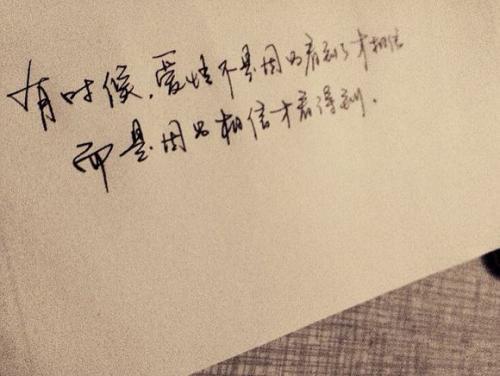 有时候，爱情不是因为看到了才相信
而是因为相信才看得到．